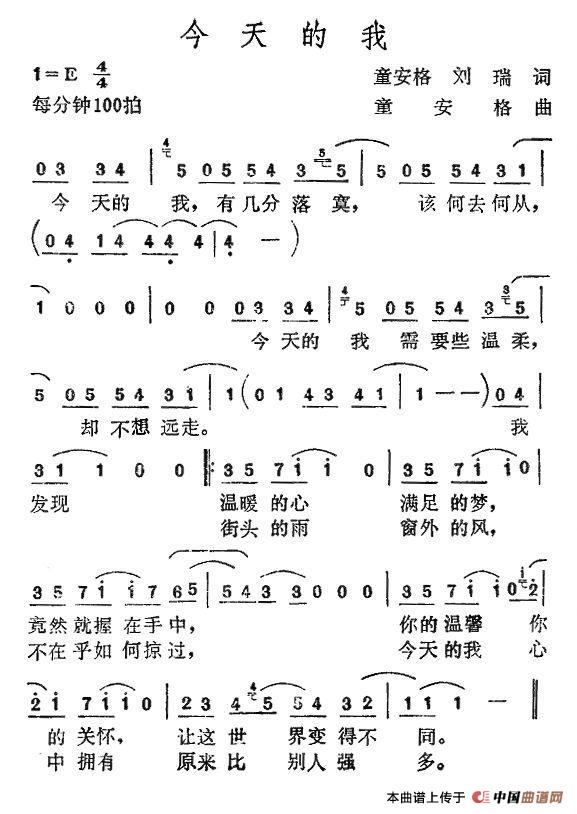 今天的我
1=E 4/4 童安格 刘瑞 词
每分钟100拍 童安格 曲
03 34 | 5 05 54 3 5 | 5 05 54 31 |
今 天的 我，有几分落寞， 该何去何从，
(04 14 44 4 | 4 —)
1 0 0 0 | 0 0 03 34 | 5 05 54 35 |
今 天的 我 需要些温柔，
5 05 54 31 | 1 (01 43 41 | 1 — —) 04 |
却不想远走。 我
31 1 0 0 ‖: 35 71 1 0 | 35 71 10 |
发现 温暖的心 满足的梦，
街头的雨 窗外的风，
35 71 17 65 | 54 3 0 0 0 | 35 71 10 2 |
竟然就握在手中， 你的温馨 你
不在乎如何掠过， 今天的我 心
21 71 10 | 23 45 54 32 | 11 1 — ‖
的关怀，让这世界变得不同。
中拥有 原来比别人强多。
本曲谱上传于 中国曲谱网